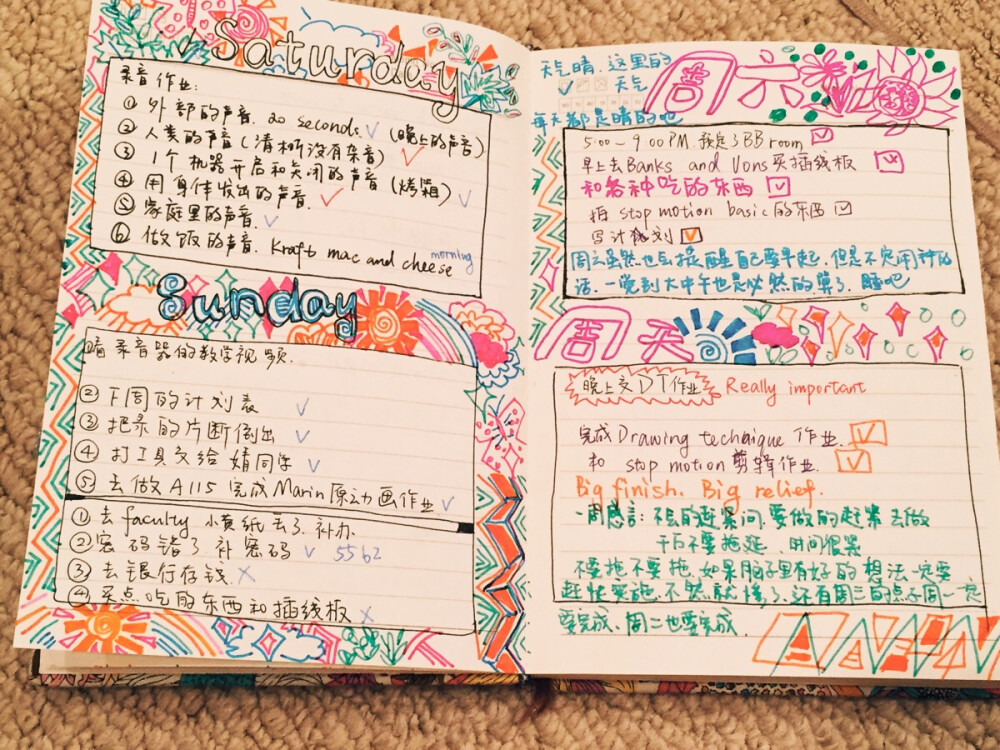 Saturday
录音作业:
① 外部的声音. 20 seconds. (晚上的声音)
② 人类的声音 (清晰没有杂音)
③ 1个机器开启和关闭的声音 (烤箱)
④ 用身体发出的声音.
⑤ 家庭里的声音.
⑥ 做饭的声音. Kraft mac and cheese morning
Sunday
录音器的教学视频.
② 下周的计划表
③ 把录的片断倒出
④ 打工具交给婧同学
⑤ 去做A115 完成Marin原动画作业
① 去faculty 小黄纸丢了. 补办.
② 密码错了 补密码 5562
③ 去银行存钱.
④ 买点吃的东西和插线板
天气晴. 这里的
天气
每天都是晴的吧
周六
5:00 - 9:00 PM. 预定了BB room
早上去Banks and Vons买插线板
和各种吃的东西
拍 stop motion basic的东西
写计划
周六虽然也后提醒自己要早起. 但是不定闹钟的
话. 一觉到大中午也是必然的
算了. 睡吧
周天
晚上交DT作业 Really important
完成Drawing technique 作业.
和 stop motion 剪辑作业.
Big finish. Big relief.
一周感言: 不会的赶紧问. 要做的赶紧去做
千万不要拖延. 时间很紧
不要拖不要拖. 如果脑子里有好的想法一定要
赶忙实施. 不然就
了. 还有周三的点子周一定
要完成. 周二也要完成.